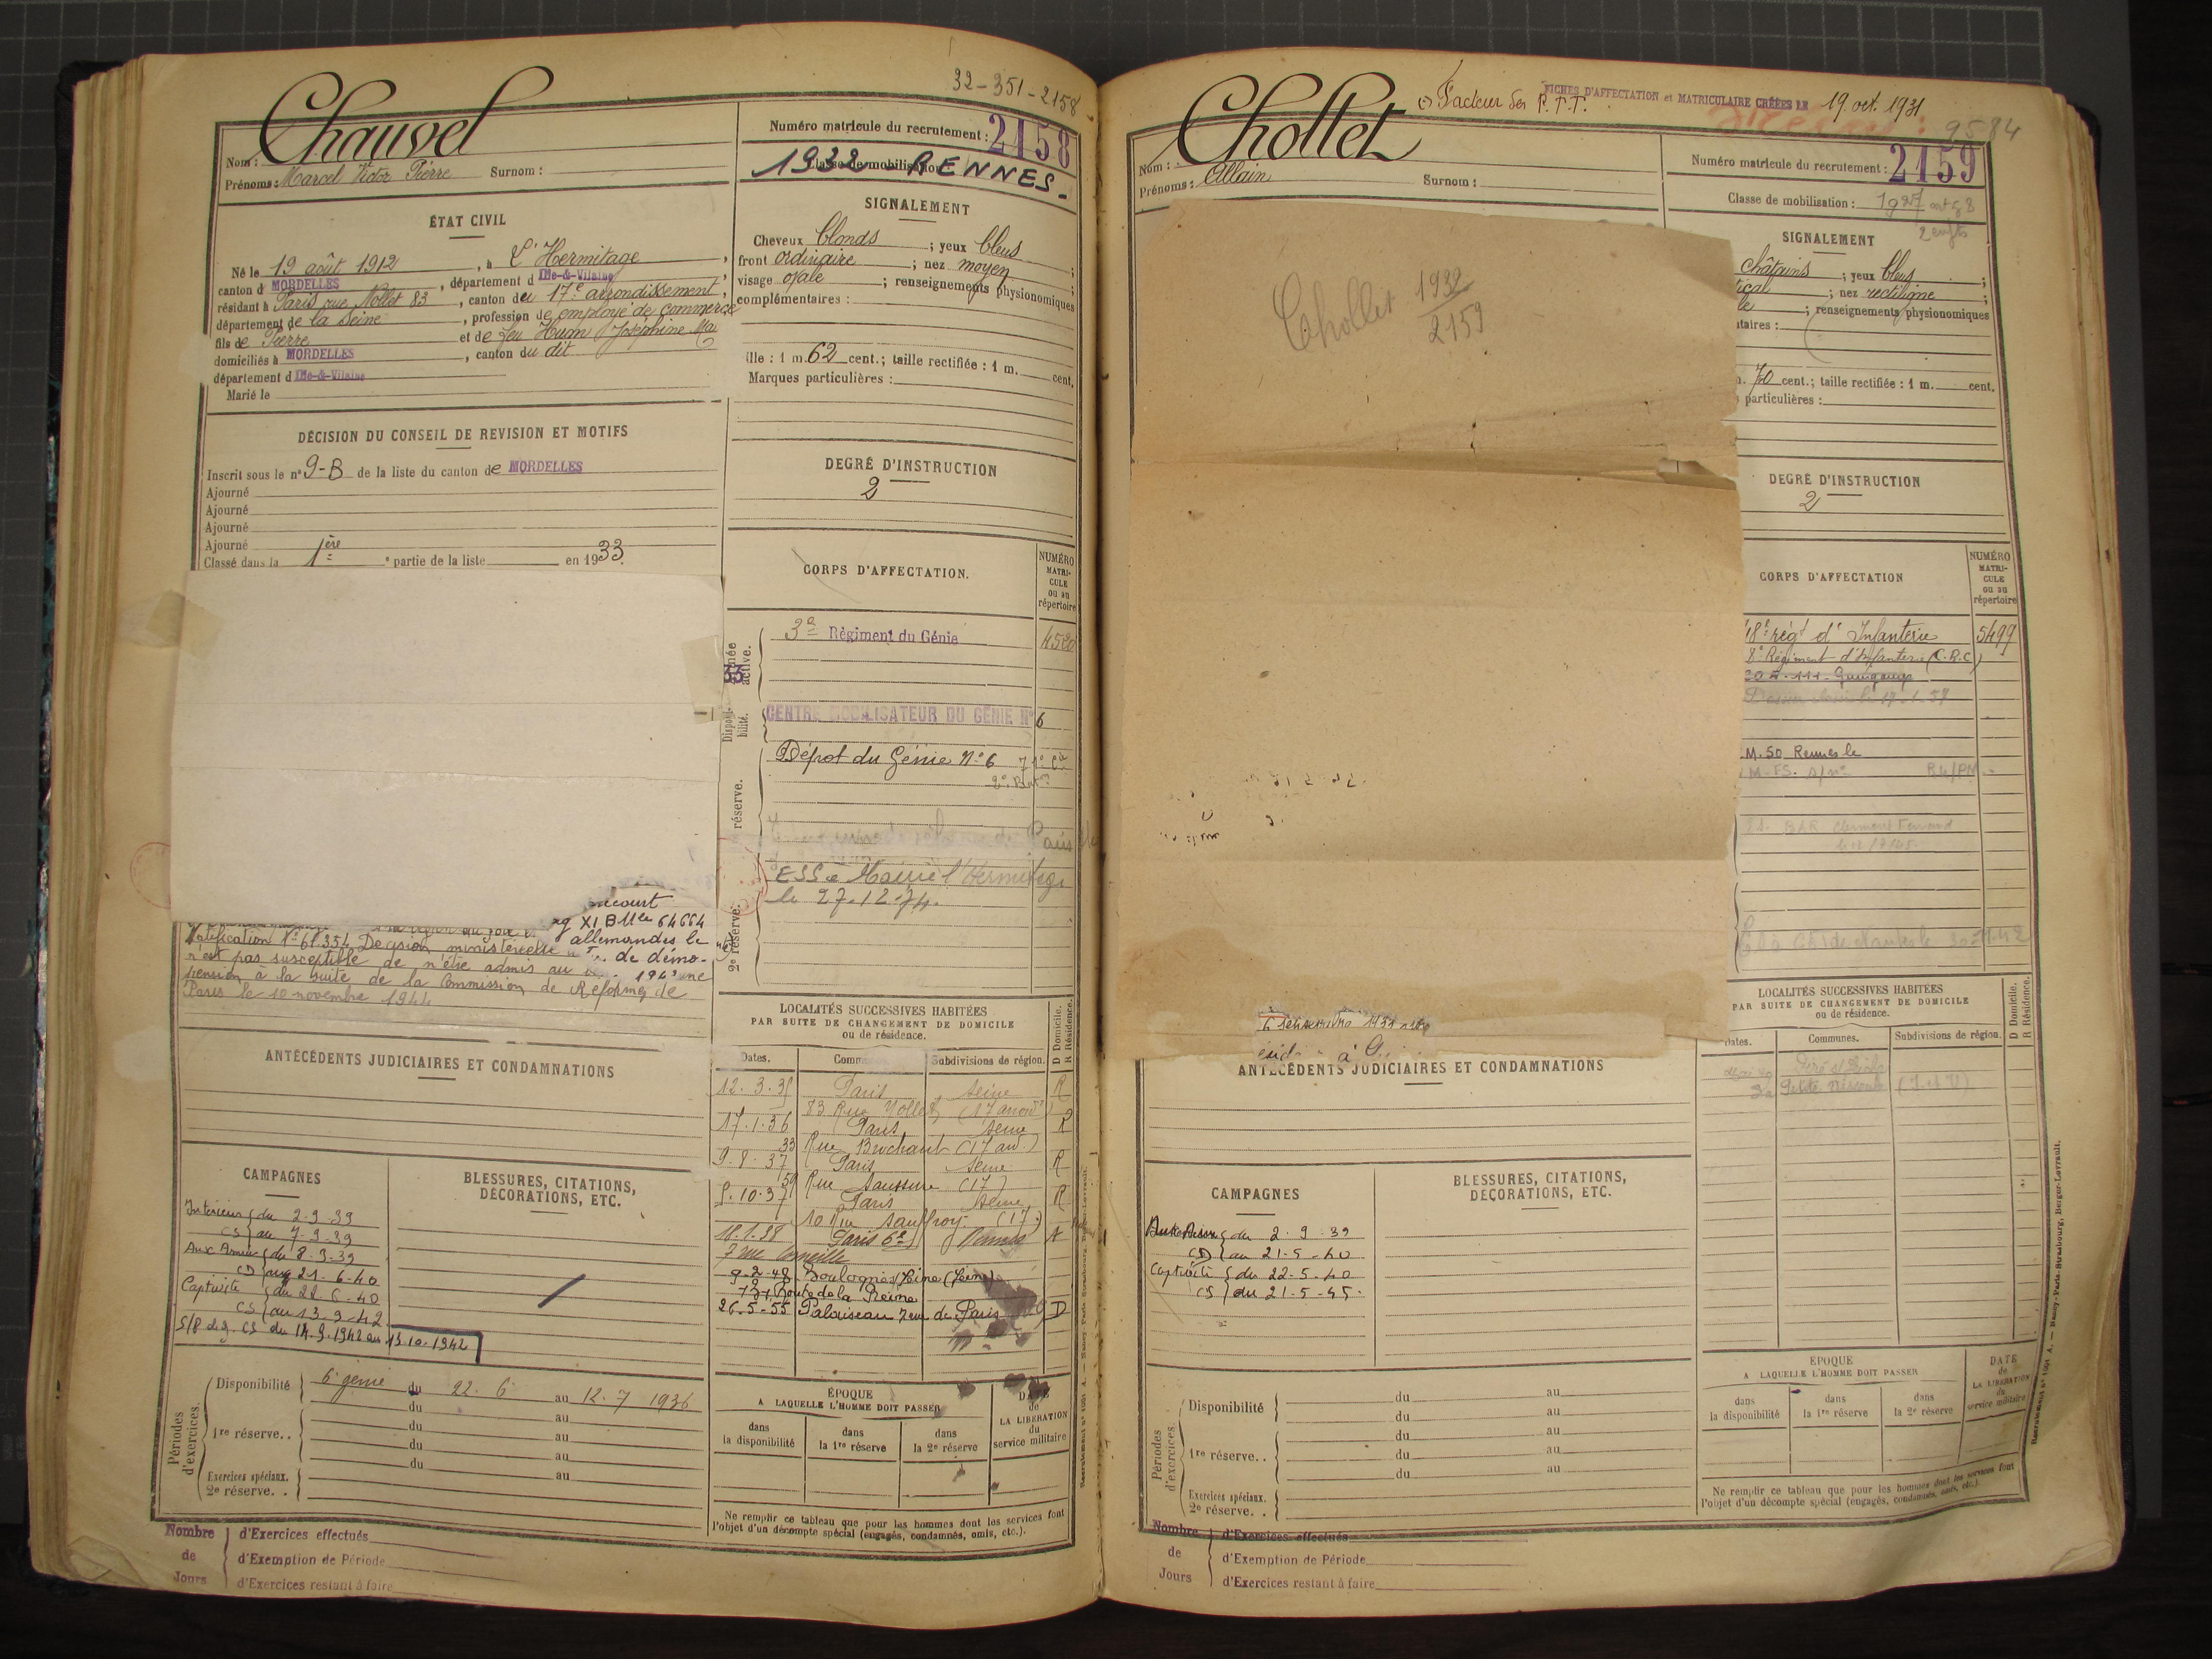 32-351-2158
Chauvel
Nom :
Prénoms : Marcel Victor Pierre Surnom :
Numéro matricule du recrutement : 2158
Classe de mobilisation
1932 - RENNES -
ÉTAT CIVIL
Né le 19 août 1912, à L'Hermitage,
canton d MORDELLES, département d Ille-&-Vilaine,
résidant à Paris rue Nollet 83, canton du 17e arrondissement,
département de la Seine, profession de employé de commerce
fils de Pierre et de feu Hum Joséphine Ma
domiciliés à MORDELLES, canton du dit
département d Ille-&-Vilaine
Marié le
SIGNALEMENT
Cheveux blonds ; yeux bleus ;
front ordinaire ; nez moyen ;
visage ovale ; renseignements physionomiques
complémentaires :
ille : 1 m. 62 cent.; taille rectifiée : 1 m. cent.
Marques particulières :
DÉCISION DU CONSEIL DE REVISION ET MOTIFS
Inscrit sous le n° 9-B de la liste du canton de MORDELLES
Ajourné
Ajourné
Ajourné
Ajourné
Classé dans la 1ère partie de la liste en 1933.
DEGRÉ D'INSTRUCTION
2
CORPS D'AFFECTATION.
NUMÉRO MATRI-CULE ou au répertoire
active.
33
3e Régiment du Génie
Disponi-bilité.
CENTRE MOBILISATEUR DU GÉNIE N° 6
réserve.
Dépôt du Génie N° 6
ESS Mairie l'Hermitage
le 27-12-74.
2e réserve.
ncourt
XI B Mle 64664
allemandes le
Notification N° 61.354 Décision ministérielle
de démo-
n'est pas susceptible de n'être admis au
pension à la suite de la Commission de Réforme de
Paris le 10 novembre 1944
ANTÉCÉDENTS JUDICIAIRES ET CONDAMNATIONS
LOCALITÉS SUCCESSIVES HABITÉES
PAR SUITE DE CHANGEMENT DE DOMICILE
ou de résidence.
D Domicile.
R Résidence.
Dates. Comm Subdivisions de région.
12. 3. 35 Paris Seine R
83 Rue Nollet (17 arrondt)
17. 1. 36 Paris Seine R
33 Rue Brochant (17 arr.)
9. 8. 37 Paris Seine R
59 Rue Saussure (17)
5. 10. 37 Paris Seine R
10 Rue Sauffroy (17)
18.1.38 Paris 6e
7 rue Corneille
9-2-48 Boulogne s/Seine (Seine)
Route de la Reine
26-5-55 Palaiseau de Paris D
CAMPAGNES
BLESSURES, CITATIONS,
DÉCORATIONS, ETC.
Intérieur du 2-9-39
CS au 7-9-39
Aux Armées du 8-9-39
CD au 21-6-40
Captivité du 22-6-40
CS au 13-9-42
CS du 14.9.1942 au 13-10-1942
Périodes d'exercices.
Disponibilité 6e génie du 22. 6 au 12. 7 1936
du au
1re réserve. . du au
du au
du au
Exercices spéciaux.
2e réserve. .
ÉPOQUE
A LAQUELLE L'HOMME DOIT PASSER
dans la disponibilité
dans la 1re réserve
dans la 2e réserve
DATE de LA LIBÉRATION du service militaire
Ne remplir ce tableau que pour les hommes dont les services font
l'objet d'un décompte spécial (engagés, condamnés, omis, etc.).
Nombre de Jours
d'Exercices effectués
d'Exemption de Période
d'Exercices restant à faire
Facteur des P.T.T.
FICHES D'AFFECTATION et MATRICULAIRE CRÉÉES LE 19. oct. 1931
9584
Chollet
Nom :
Prénoms : Allain Surnom :
Numéro matricule du recrutement : 2159
Classe de mobilisation : 1927
2 enfts
Chollet 1932
2159
SIGNALEMENT
châtains ; yeux bleus ;
ical ; nez rectiligne ;
le ; renseignements physionomiques
ntaires :
70 cent.; taille rectifiée : 1 m. cent.
particulières :
DEGRÉ D'INSTRUCTION
2
CORPS D'AFFECTATION
NUMÉRO MATRI-CULE ou au répertoire
régt d'Infanterie 5499
8e Régiment d'Infanterie (C.R.C)
Guingamp
M. 50 Rennes le
Clermont Ferrand
LOCALITÉS SUCCESSIVES HABITÉES
PAR SUITE DE CHANGEMENT DE DOMICILE
ou de résidence.
D Domicile.
R Résidence.
Dates. Communes. Subdivisions de région.
ANTÉCÉDENTS JUDICIAIRES ET CONDAMNATIONS
CAMPAGNES
BLESSURES, CITATIONS,
DÉCORATIONS, ETC.
du 2. 9. 39
CD au 21-5-40
Captivité du 22-5-40
CS du 21-5-45.
Périodes d'exercices.
Disponibilité du au
du au
du au
1re réserve. . du au
du au
Exercices spéciaux.
2e réserve. .
ÉPOQUE
A LAQUELLE L'HOMME DOIT PASSER
dans la disponibilité
dans la 1re réserve
dans la 2e réserve
DATE de LA LIBÉRATION du service militaire
Ne remplir ce tableau que pour les hommes dont les services font
l'objet d'un décompte spécial (engagés, condamnés, omis, etc.).
Nombre de Jours
d'Exercices effectués
d'Exemption de Période
d'Exercices restant à faire